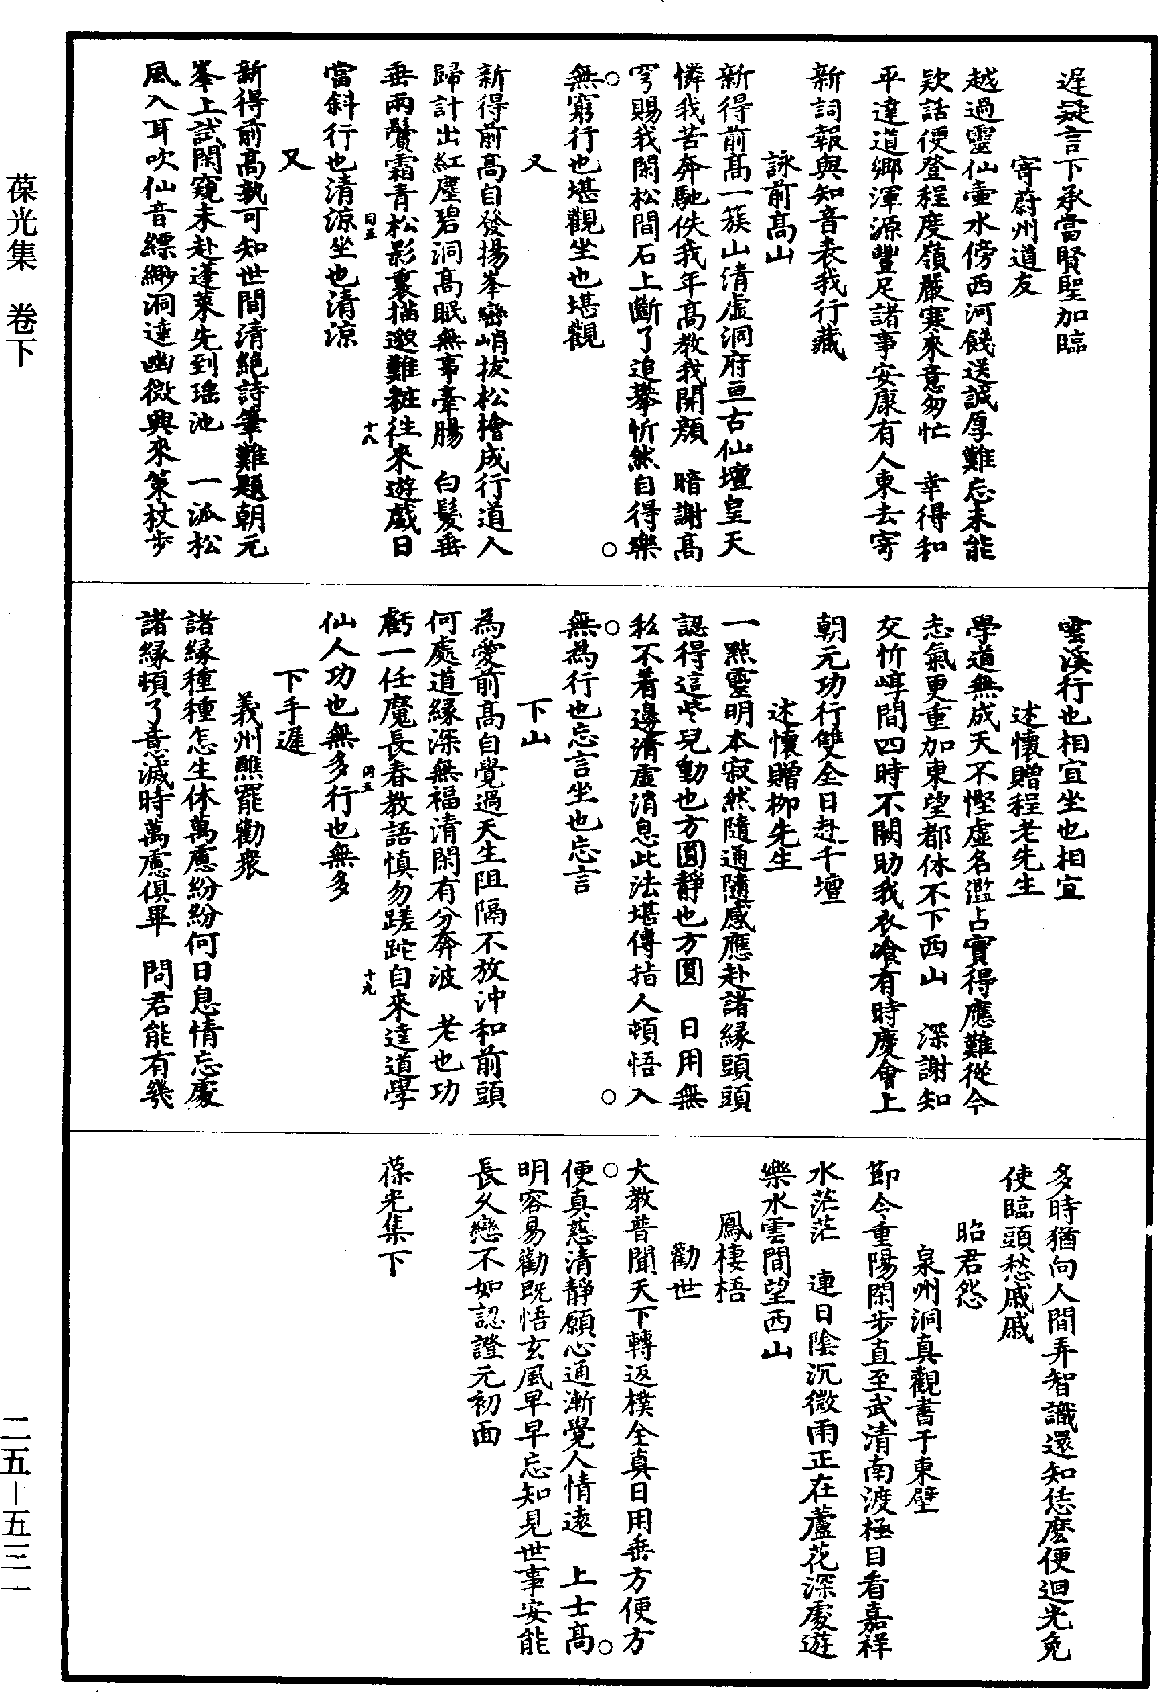 遅疑言下承當賢聖加臨
寄蔚州道友
越過靈仙壷水傍西河餞送誠厚難忘未能
欵話便登程度嶺嚴寒來意匆忙　幸得和
平達道郷渾源豐足諸事安康有人東去寄
新詞報與知音表我行藏
詠前高山
新得前高一簇山清虚洞府亘古仙壇皇天
憐我苦奔馳佚我年高教我開顔　暗謝高
穹賜我閑松間石上斷了追攀忻然自得樂
○無窮行也堪觀坐也堪觀○
又
新得前高自發揚峯巒峭拔松檜成行道人
歸計出紅塵碧洞高眠無事牽腸　白髮垂
垂兩鬢霜青松影裏描邈難粧往來遊戲日
同五　十八
當斜行也清凉坐也清凉
又
新得前高孰可知世間清絶詩筆難題朝元
峯上試閑窺未赴蓬萊先到瑶池　一派松
風入耳吹仙音縹緲洞達幽微興來策杖步
雲溪行也相宜坐也相宜
述懷贈程老先生
學道無成天不慳虚名濫占實得應難從今
志氣更重加東望都休不下西山　深謝知
交忻崞間四時不闕助我衣飡有時慶會上
朝元功行雙全日赴千壇
述懷贈柳先生
一點靈明本寂然隨通隨感應赴諸縁頭頭
認得這些兒動也方圓靜也方圓　日用無
私不着邊清虚消息此法堪傳指人頓悟入
○無為行也忘言坐也忘言○
下山
為愛前高自覺過天生阻隔不放沖和前頭
何處道縁深無福清閑有分奔波　老也功
虧一任魔長春教語慎勿蹉跎自來達道學
同五　十九
仙人功也無多行也無多
下手遲
義州醮罷勸衆
諸縁種種怎生休萬慮紛紛何日息情忘處
諸縁頓了意滅時萬慮俱畢　問君能有幾
多時猶向人間弄智識還知恁麽便迴光免
使臨頭愁戚戚
昭君怨
泉州洞真觀書于東壁
節令重陽閑步直至武清南渡極目看嘉祥
水茫茫　連日陰沉微雨正在蘆花深處遊
樂水雲間望西山
鳳棲梧
勸世
大教普聞天下轉返樸全真日用垂方便方
○便真慈清靜願心通漸覺人情遠　上士高○
明容易勸既悟玄風早早忘知見世事安能
長久戀不如認證元初面
葆光集下
葆光集　卷下
二五—五三一